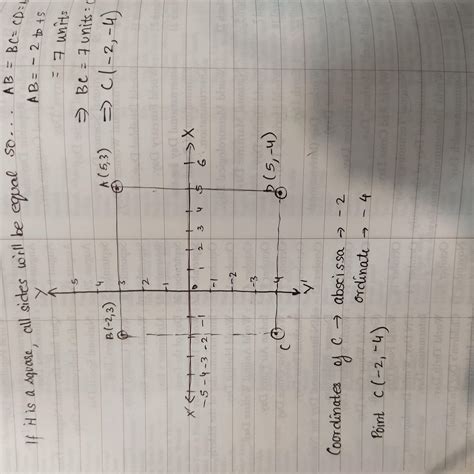 If it is a square, all sides will be equal so... AB = BC = CD =
AB = -2 to +5
= 7 units
⇒ BC = 7 units =
⇒ C (-2, -4)
Y
5
B(-2,3)
A (5,3)
4
3
2
1
X' -5 -4 -3 -2 -1 0 1 2 3 4 5 6 X
-1
-2
-3
-4
C
D (5, -4)
Y'
Coordinates of C → abscissa → -2
ordinate → -4
Point C (-2, -4)